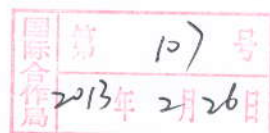 国际合作局
第 107 号
2013年 2月26日